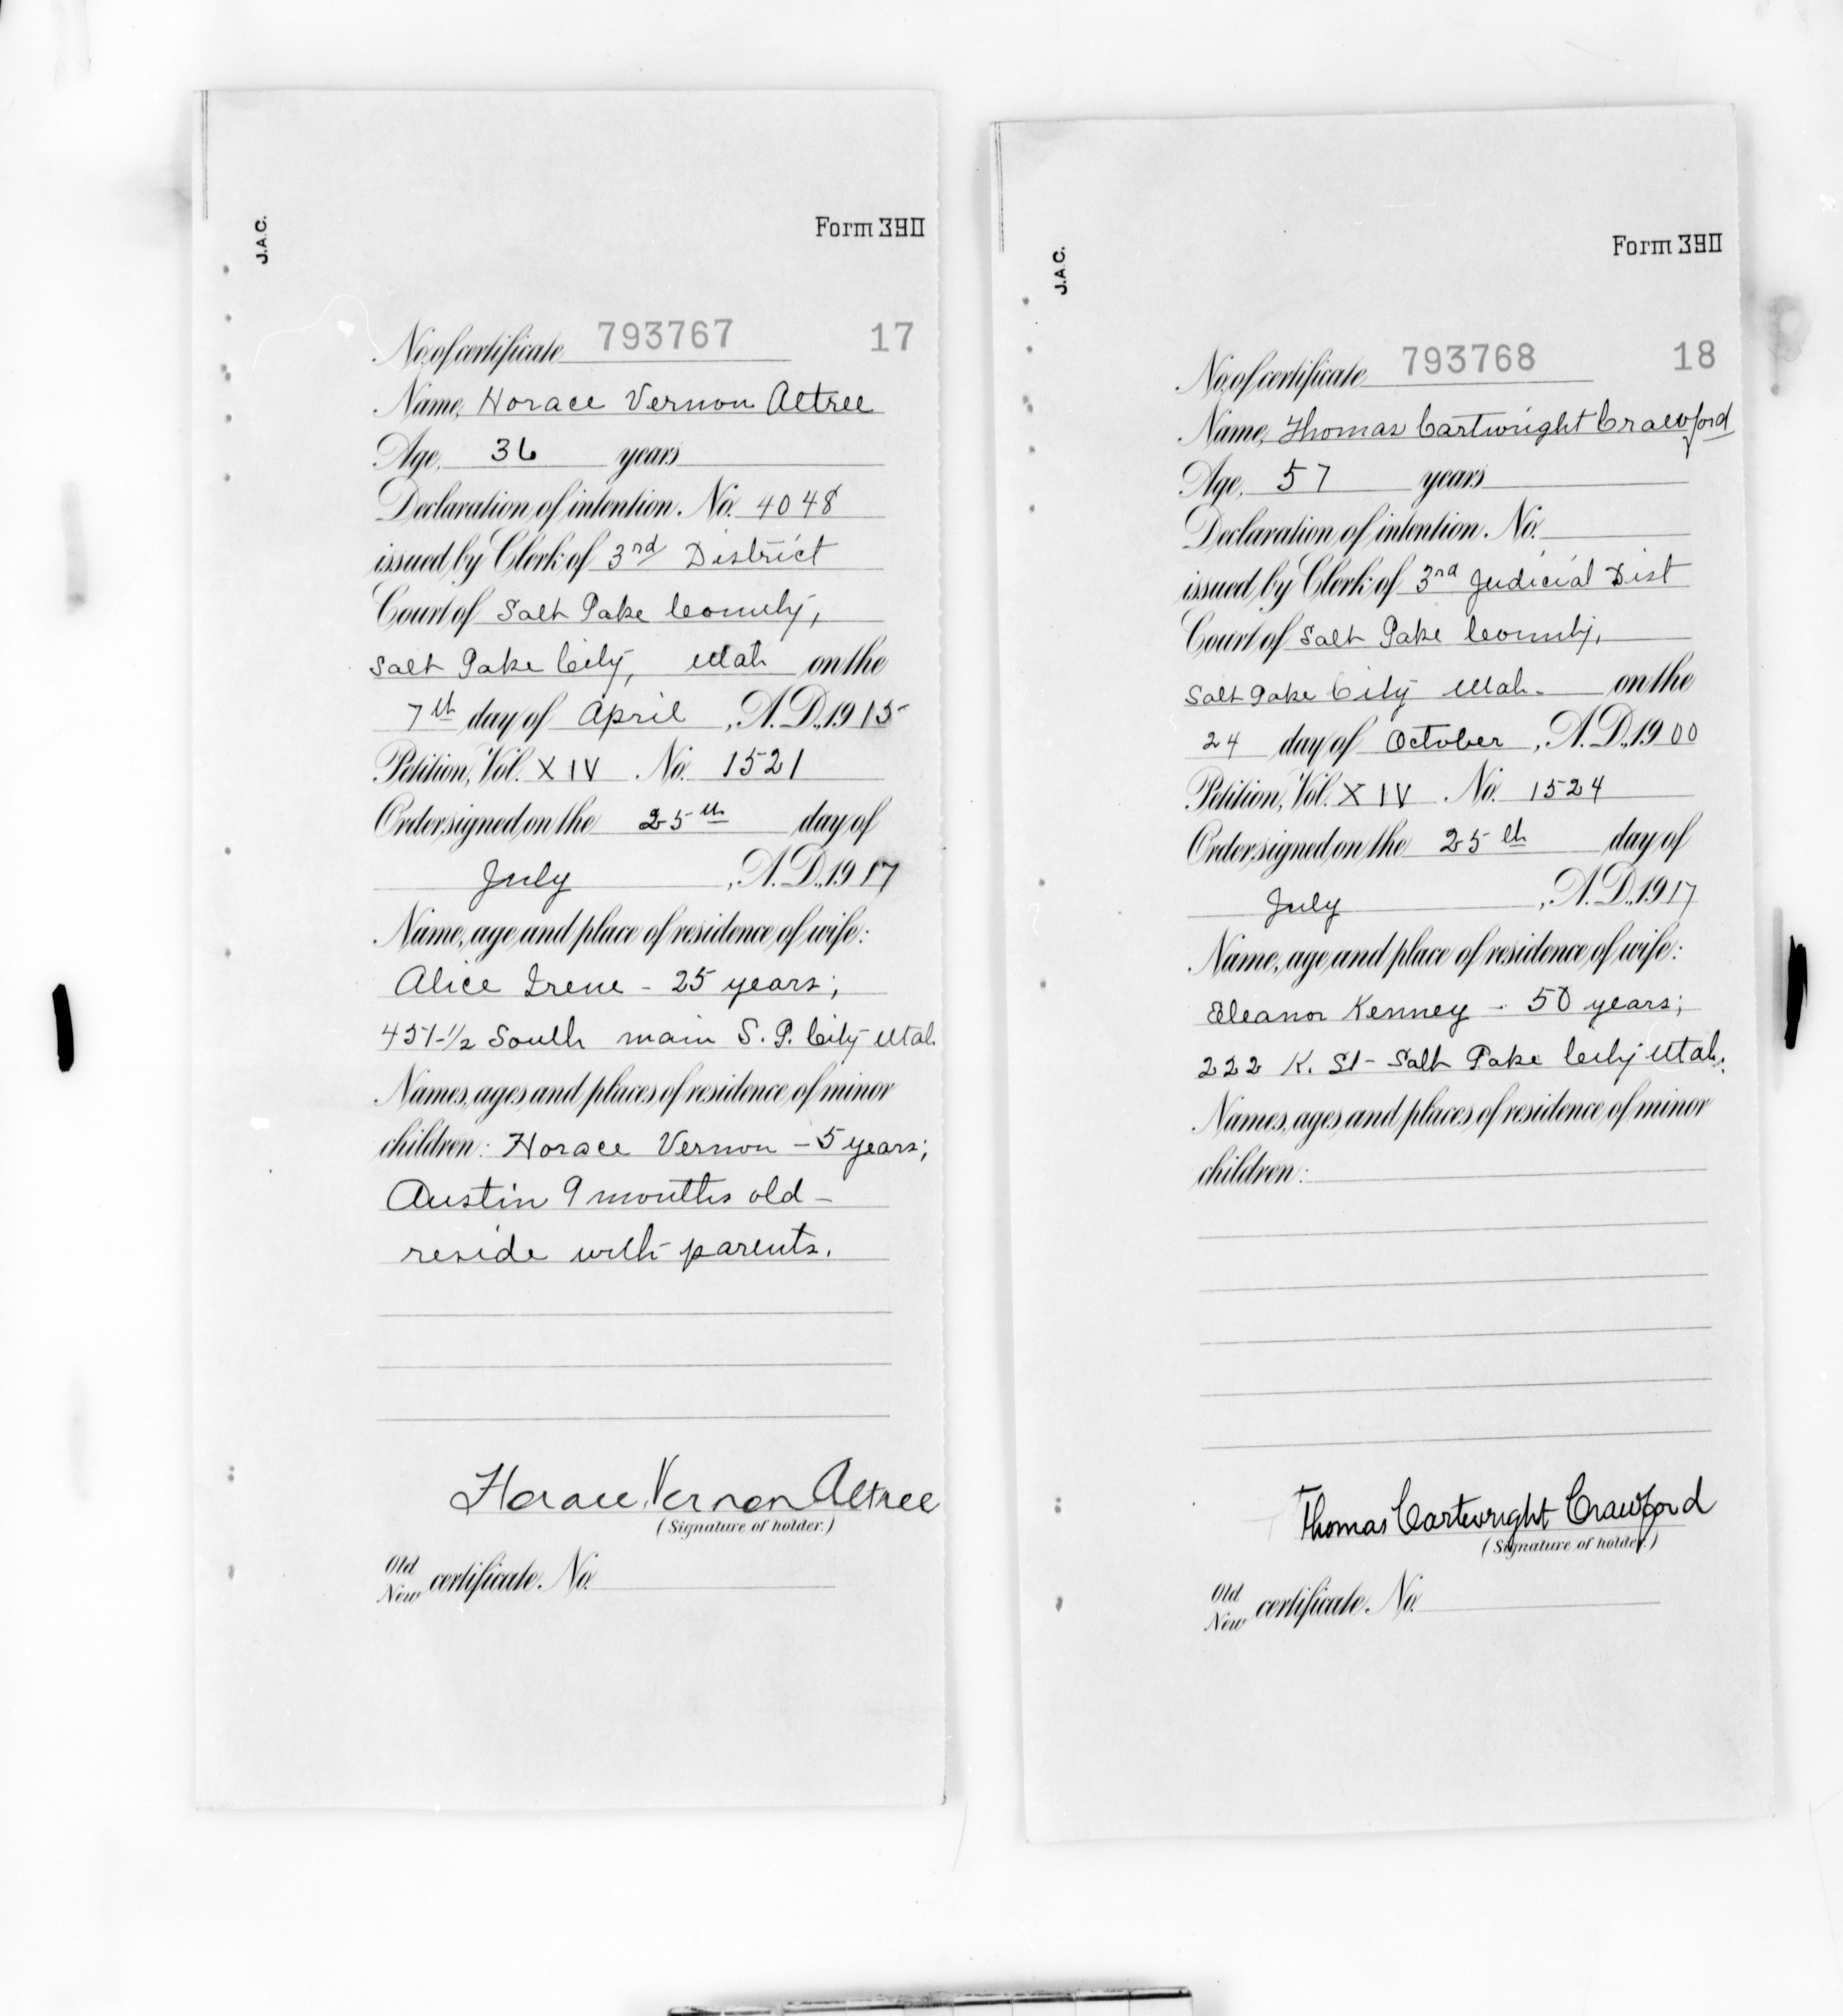 J.A.C.
Form 390
No. of certificate 793767 17
Name, Horace Vernon Altree
Age, 36 years
Declaration of intention. No. 4048
issued by Clerk of 3rd District
Court of Salt Lake County,
Salt Lake City, Utah on the
7th day of April, A.D., 1915
Petition, Vol. XIV No. 1521
Order signed on the 25th day of
July, A.D., 1917
Name, age and place of residence of wife:
Alice Irene - 25 years;
451-1/2 South main S. L. City Utah.
Names, ages and places of residence of minor
children: Horace Vernon - 5 years;
Austin 9 months old -
reside with parents.
Horace Vernon Altree
(Signature of holder.)
Old
New certificate. No.
J.A.C.
Form 390
No. of certificate 793768 18
Name, Thomas Cartwright Crawford
Age, 57 years
Declaration of intention. No.
issued by Clerk of 3rd Judicial Dist
Court of Salt Lake County,
Salt Lake City Utah. on the
24 day of October, A.D., 1900
Petition, Vol. XIV No. 1524
Order signed on the 25th day of
July, A.D., 1917
Name, age and place of residence of wife:
Eleanor Kenney - 50 years;
222 K. St - Salt Lake City Utah.
Names, ages and places of residence of minor
children:
Thomas Cartwright Crawford
(Signature of holder.)
Old
New certificate. No.